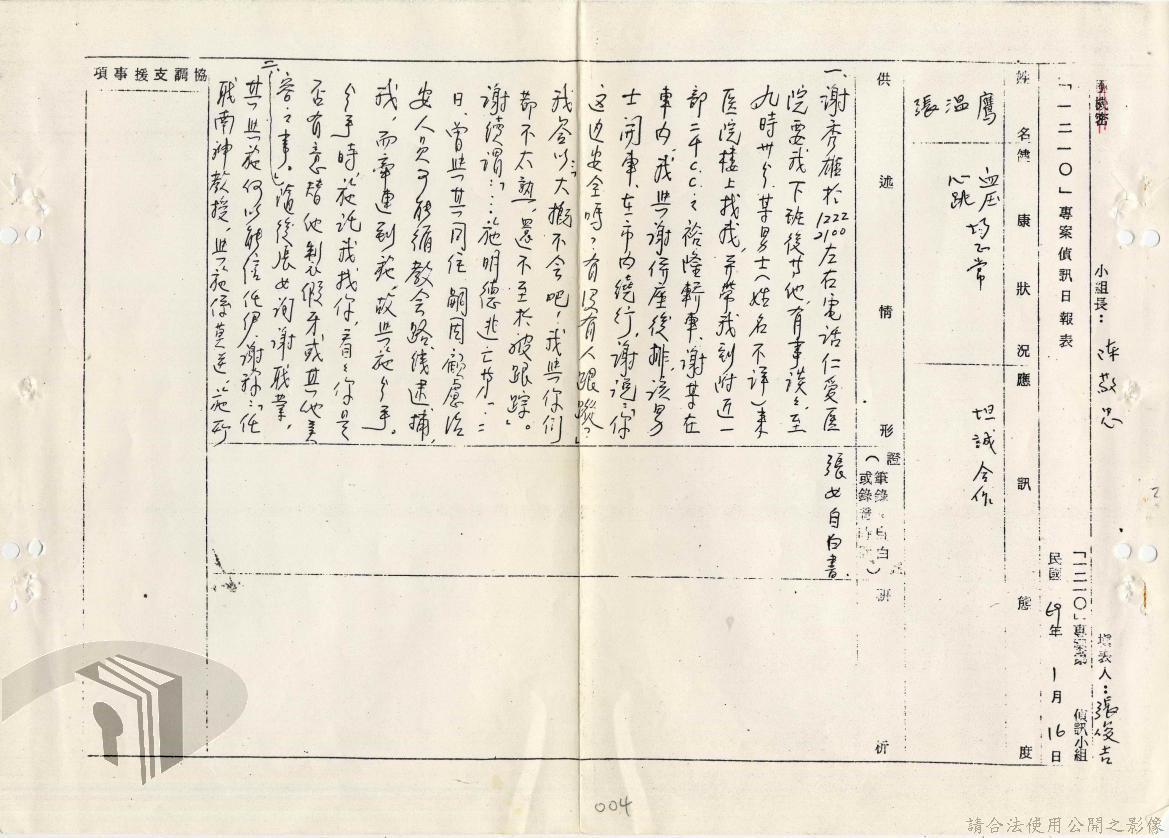 機密
「一二一０」專案偵訊日報表
小組長：陳敬忠
填表人：張俊吉
「一二一０」專案第 偵訊小組
民國69年1月16日
姓名
健康狀況
應訊態度
張溫鷹
血壓均正常
心跳
坦誠合作
供述情形
證
（筆錄、自白
或錄
研析
張女自白書
一、謝秀雄於1222 2100左右電話仁愛医
院要我下班後等他，有事談之至
九時卅分，某男士（姓名不詳）來
医院樓上找我，并帶我到附近一
部二千C.C.之裕隆轎車，謝某在
車內，我與謝併座後排，該男
士開車，在市內繞行，謝說：你
這边安全嗎？有没有人跟蹤？
我答以：大概不会吧！我與你们
都不太熟，還不至於被跟踪。」
謝續謂：…施明德逃亡
日，曾與其同住，嗣因顧慮治
安人員可能循教会路綫逮捕
我，而牽連到施，故與施分手。
分手時，施託我找你，看看你是
否有意替他製假牙或其他美
容之事。」隨後張女詢謝職業，
二、
其與施何以能信任伊，謝稱：任
職南神教授，與施係莫逆，施所
協調支援事項
004
請合法使用公開之影像